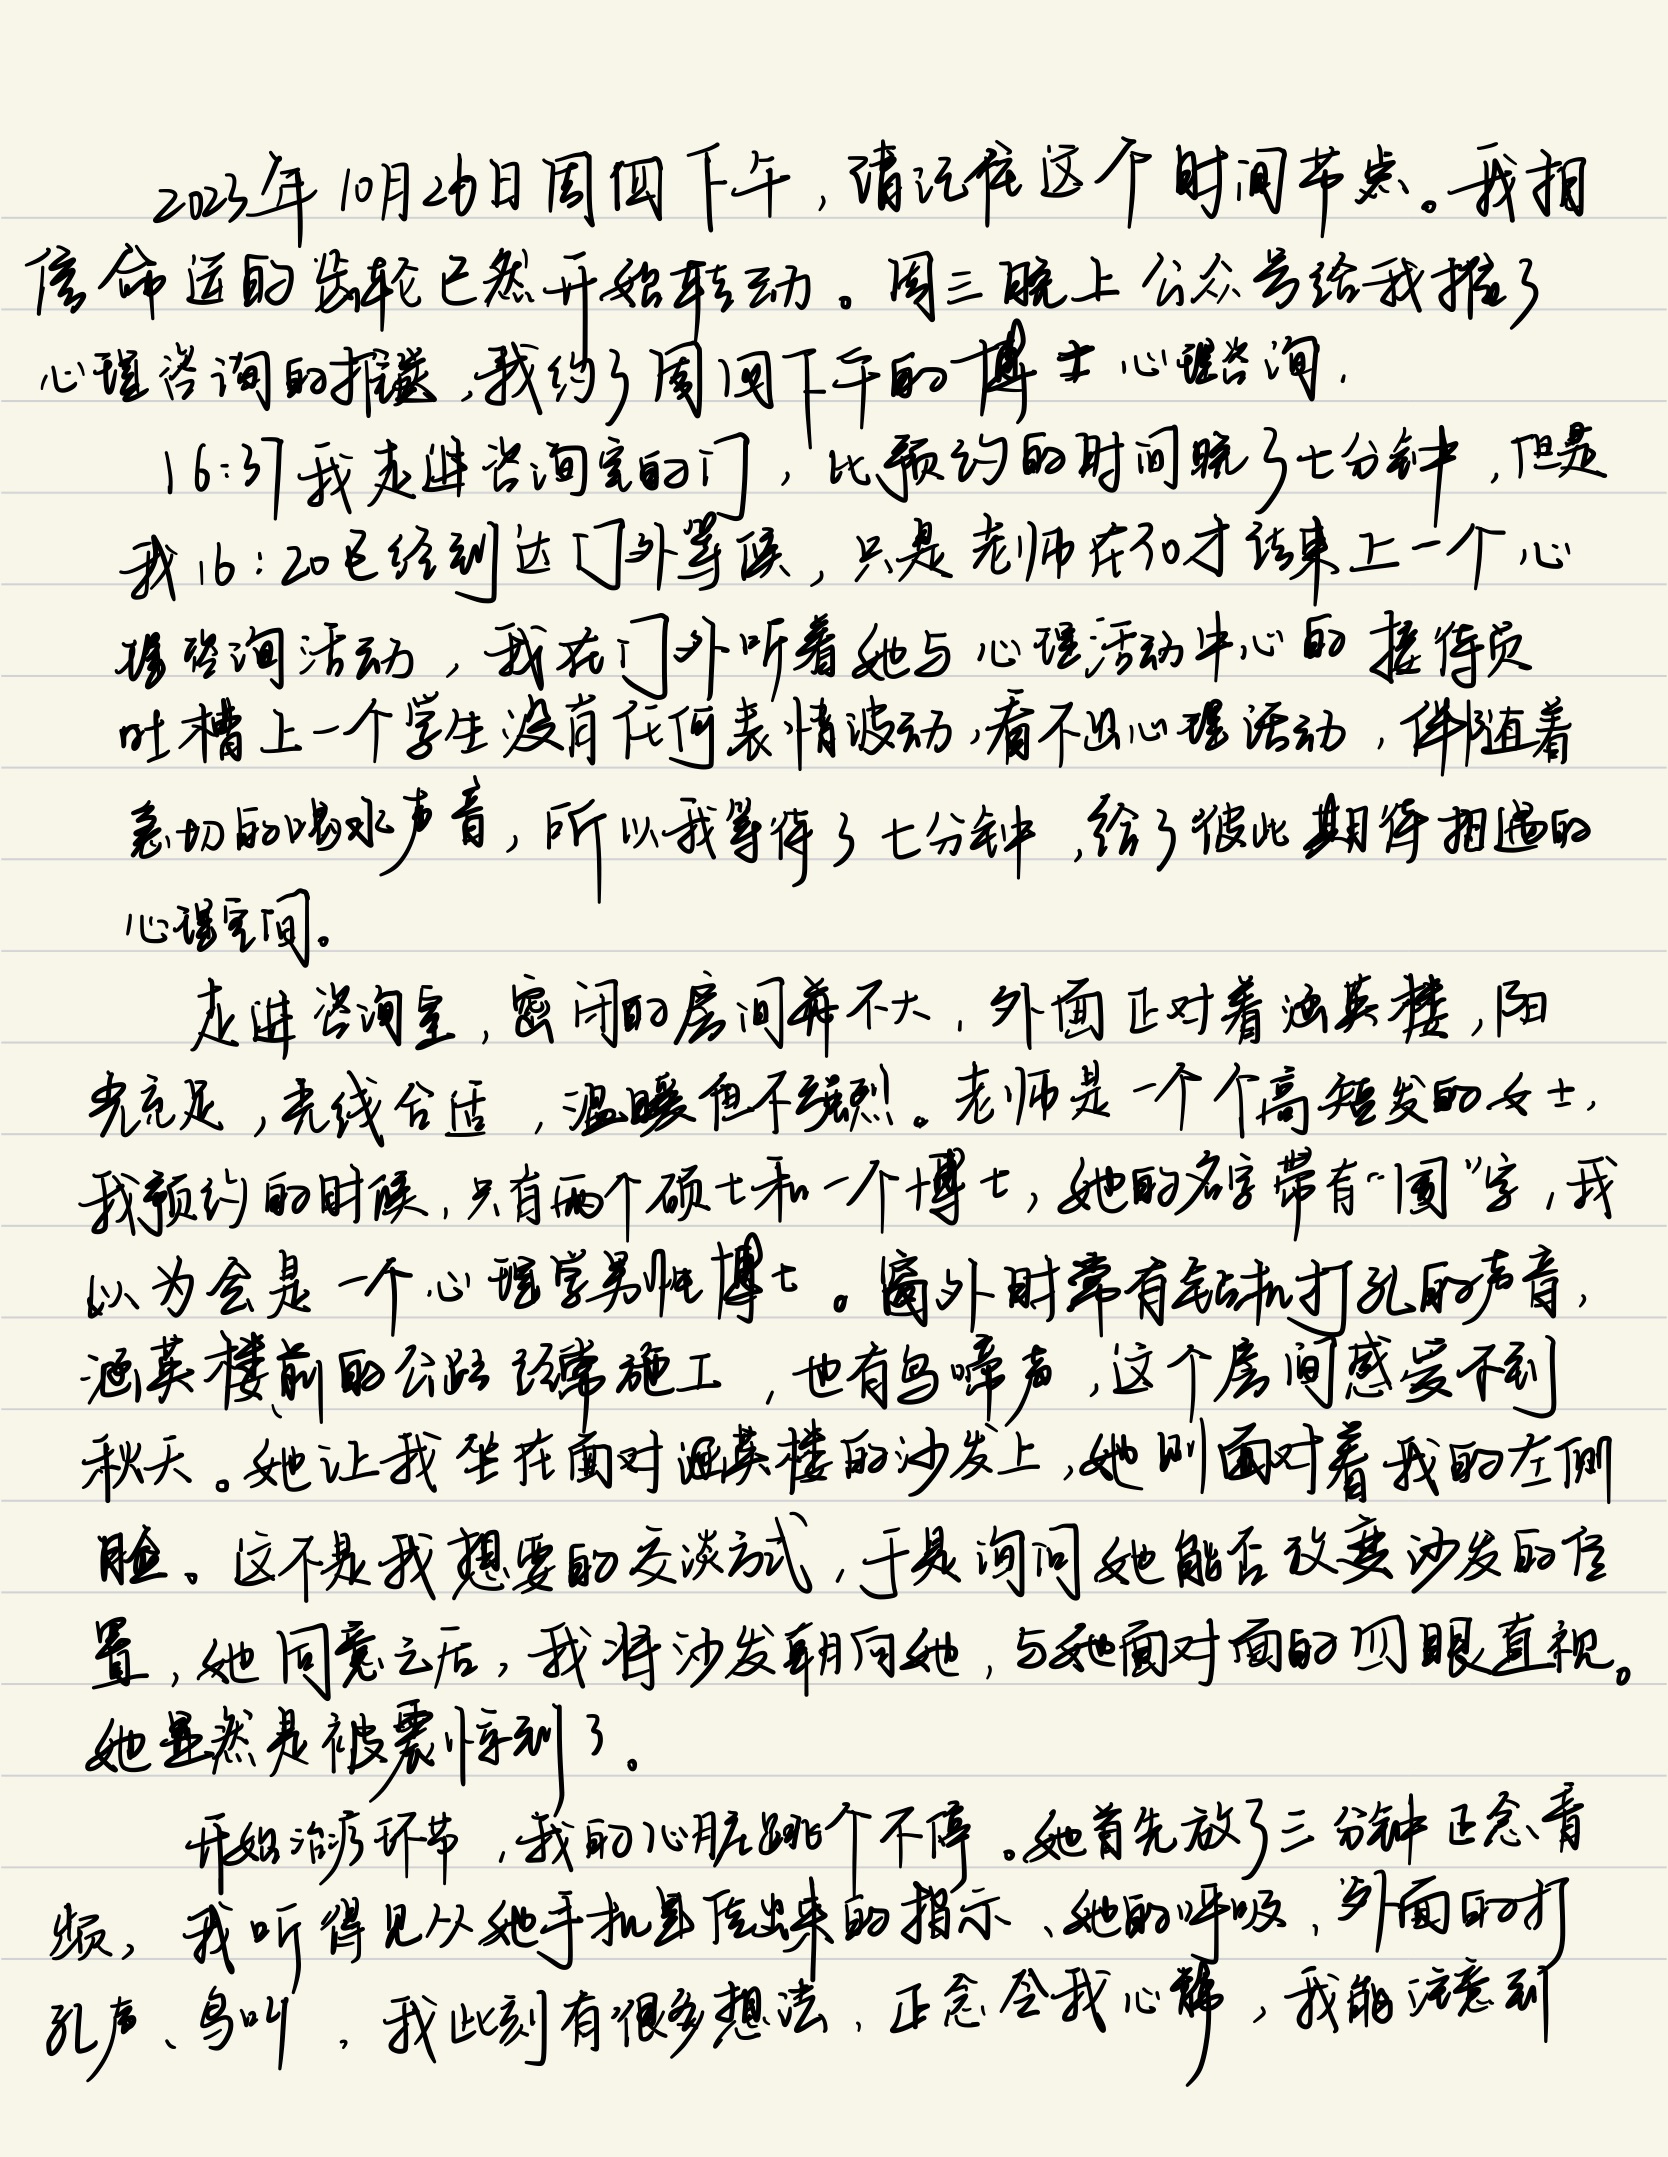 2023年10月26日周四下午，请记住这个时间节点。我相
信命运的齿轮已然开始转动。周三晚上公众号给我推了
心理咨询的推送，我约了周四下午的博士心理咨询.
16:37我走进咨询室的门，比预约的时间晚了七分钟，但是
我16:20已经到达门外等候，只是老师在30才结束上一个心
理咨询活动，我在门外听着她与心理活动中心的接待员
吐槽上一个学生没有任何表情波动，看不出心理活动，伴随着
急切的喝水声音，所以我等待了七分钟，给了彼此期待相遇的
心理空间。
走进咨询室，密闭的房间并不大，外面正对着涵英楼，阳
光充足，光线合适，温暖但不强烈。老师是一个个高短发的女士，
我预约的时候，只有两个硕士和一个博士，她的名字带有“国”字，我
以为会是一个心理学男性博士。窗外时常有钻机打孔的声音，
涵英楼前的公路经常施工，也有鸟啼声，这个房间感受不到
秋天。她让我坐在面对涵英楼的沙发上，她则面对着我的左侧
脸。这不是我想要的交谈方式，于是询问她能否改变沙发的位
置，她同意之后，我将沙发朝向她，与她面对面的四眼直视。
她显然是被震惊到了。
开始治疗环节，我的心脏跳个不停。她首先放了三分钟正念音
频，我听得见从她手机里传出来的指示、她的呼吸，外面的打
孔声、鸟叫，我此刻有很多想法，正念令我心静，我能注意到